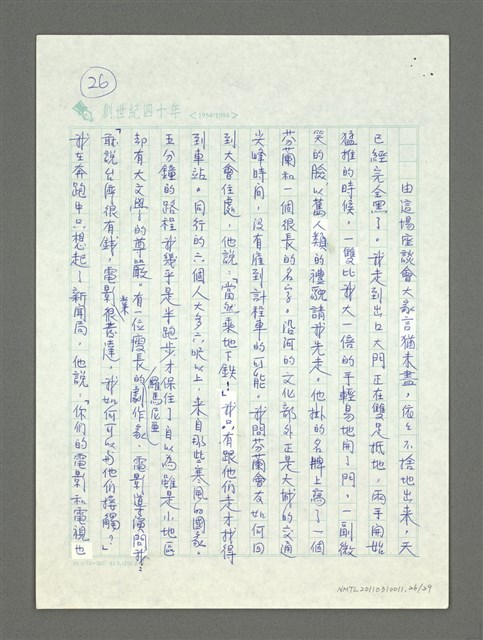 26
創世紀四十年 <1954-1994>
由這場座談會大家言猶未盡，依依不捨地出來，天
已經完全黑了。我走到出口大門正在雙足抵地，兩手開始
猛推的時候，一雙比我大一倍的手輕易地開了門，一副微
笑的臉，以舊人類的禮貌請我先走，他掛的名牌上寫了一個
芬蘭和一個很長的名字。沿河的文化部外正是大城的交通
尖峰時間，沒有雇到計程車的可能。我問芬蘭會友如何回
到大會住處，他說：「當然乘地下鉄！」我只有跟他們走才找得
到車站。同行的六個人大多六呎以上，來自那些寒風的國家。
五分鐘的路程我幾乎是半跑步才保住了自以為雖是小地區
却有大文學的尊嚴。有一位壹長的羅馬尼亞劇作家、電影導演問我：
「聽說台灣很有錢，電影業很發達，我如何可以與他們接觸？」
我在奔跑中只想起了新聞局，他說，「你們的電影和電視也
NMTL20110310011.26/29